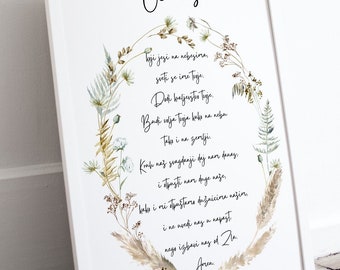 koji jesi na nebesima,
sveti se ime tvoje.
Dođi kraljevstvo tvoje,
Budi volja tvoja kako na nebu
tako i na zemlji.
Kruh naš svagdanji daj nam danas,
i otpusti nam duge naše,
kako i mi otpuštamo dužnicima našim,
i ne uvedi nas u napast
nego izbavi nas od Zla.
Amen.